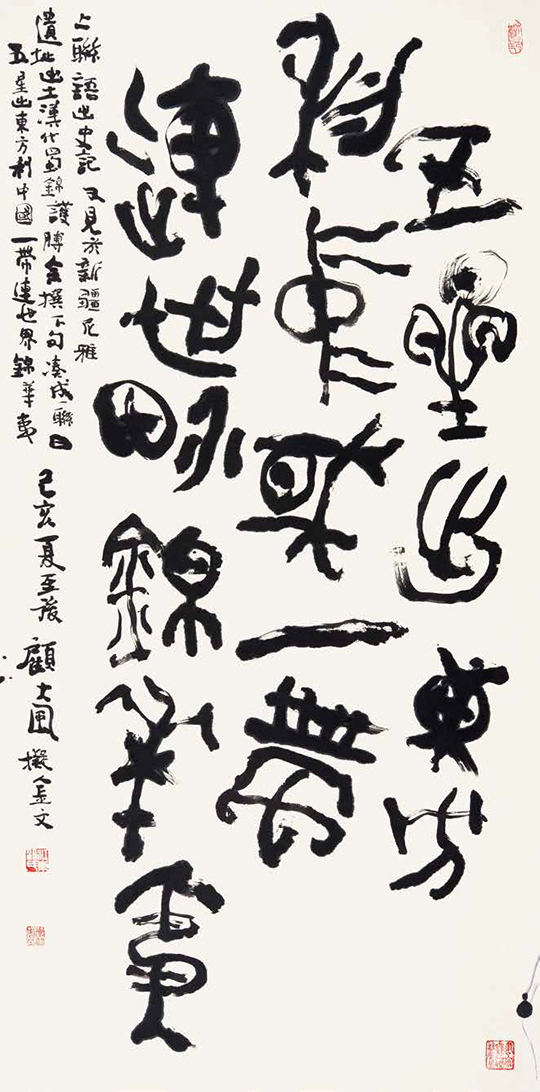 五星出東方
利中國一帶
連世界錦華
上聯語出史記又見於新疆尼雅
遺址出土漢代蜀錦護膊余撰下句湊成一聯曰
五星出東方利中國一帶連世界錦華
己亥夏至後 顧 擬金文